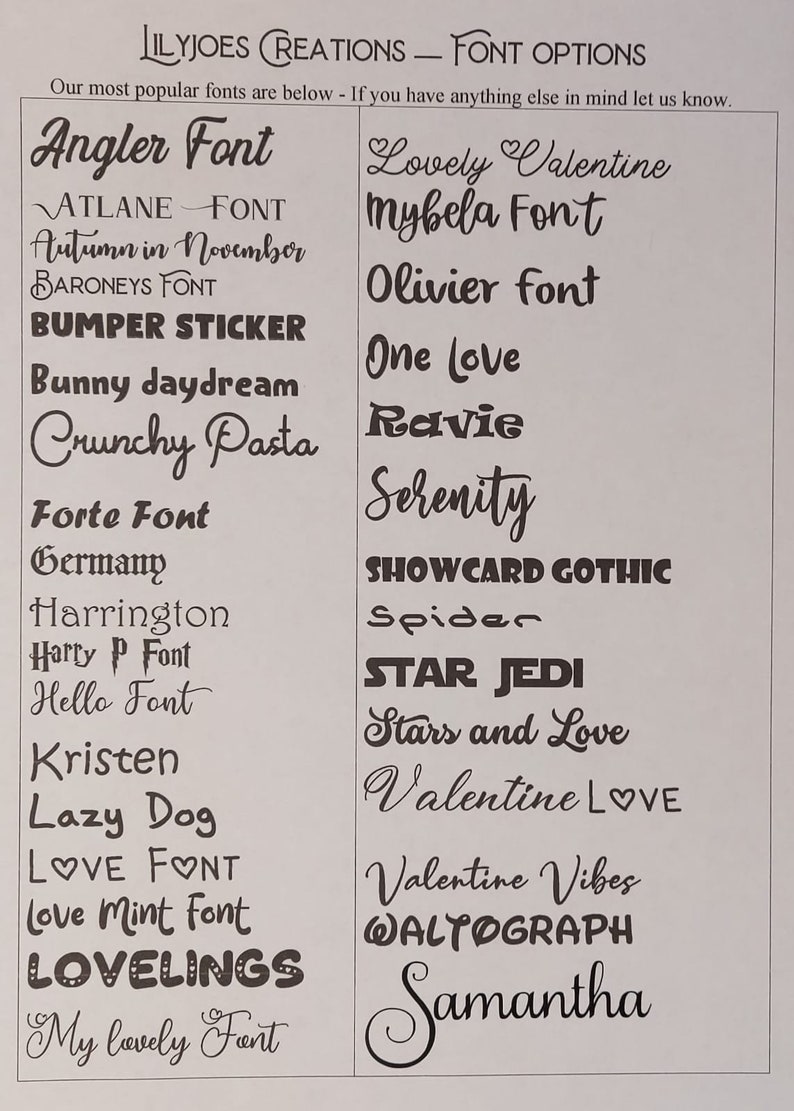 LILYJOES CREATIONS — FONT OPTIONS
Our most popular fonts are below - If you have anything else in mind let us know.
Angler Font
ATLANE FONT
Autumn in November
BARONEYS FONT
BUMPER STICKER
Bunny daydream
Crunchy Pasta
Forte Font
Germany
Harrington
Harry P Font
Hello Font
Kristen
Lazy Dog
L♡VE F♡NT
Love Mint Font
LOVELINGS
My lovely Font
Lovely Valentine
Mybela Font
Olivier Font
One Love
Ravie
Serenity
SHOWCARD GOTHIC
Spider
STAR JEDI
Stars and Love
Valentine L♡VE
Valentine Vibes
WALTOGRAPH
Samantha